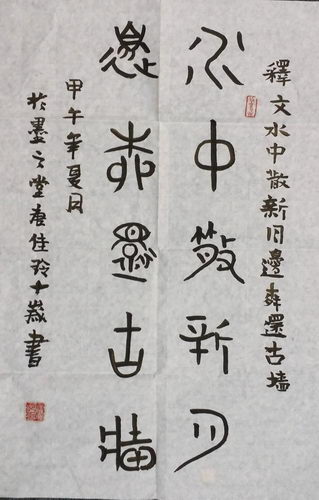 釋文水中散新月邊還古墙
水中散新月
邊還古墙
甲午年夏月
於墨之堂康佳玲十歲書